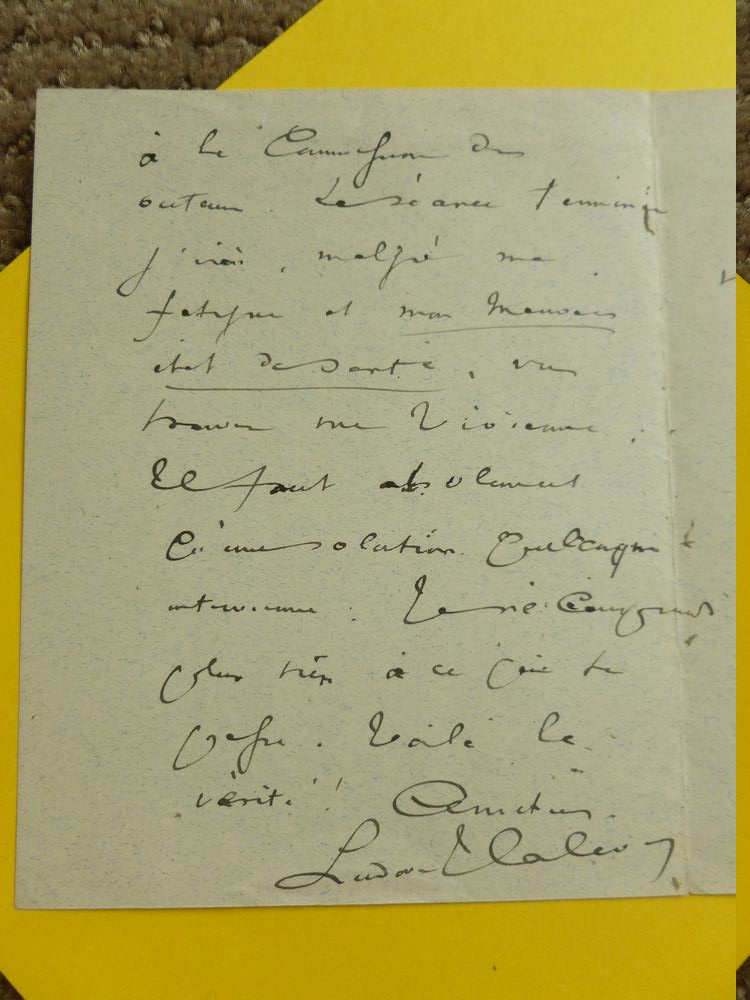 à la Commission des
auteurs. La séance terminée
j'irai, malgré ma
fatigue et mon mauvais
état de santé, vous
trouver rue Vivienne.
Il faut absolument
qu'une solution quelconque
intervienne. Je ne comprends
plus rien à ce qui se
passe. Voilà la
vérité! Amitiés.
Ludovic Halévy